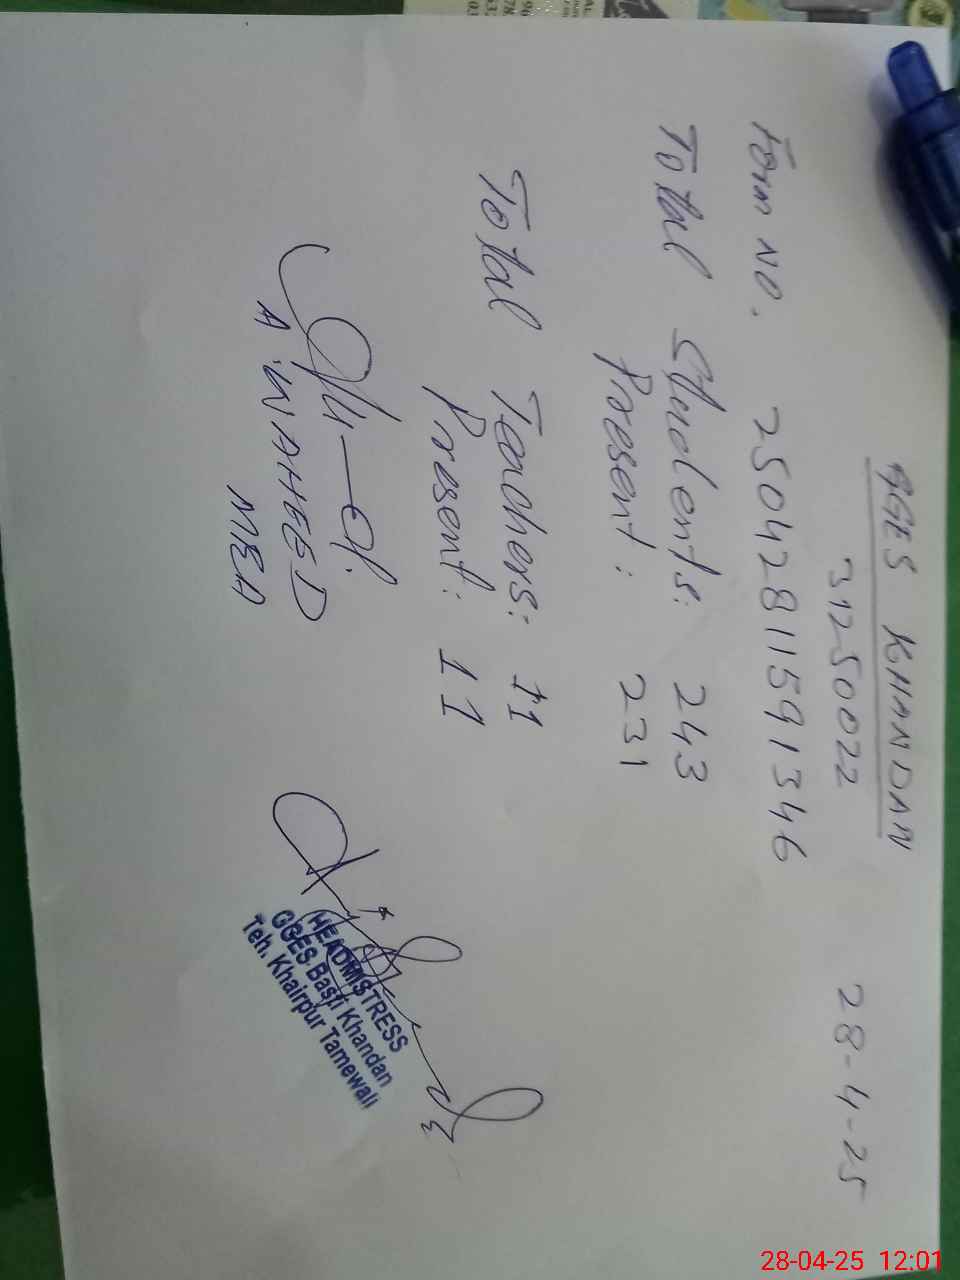 GGES KHANDAN
31250022
28-4-25
Form No. 25042811591346
Total Students: 243
Present: 231
Total Teachers: 11
Present: 11
A.WAHEED
MEA
HEADMISTRESS
GGES Basti Khandan
Teh. Khairpur Tamewali
28-04-25 12:01